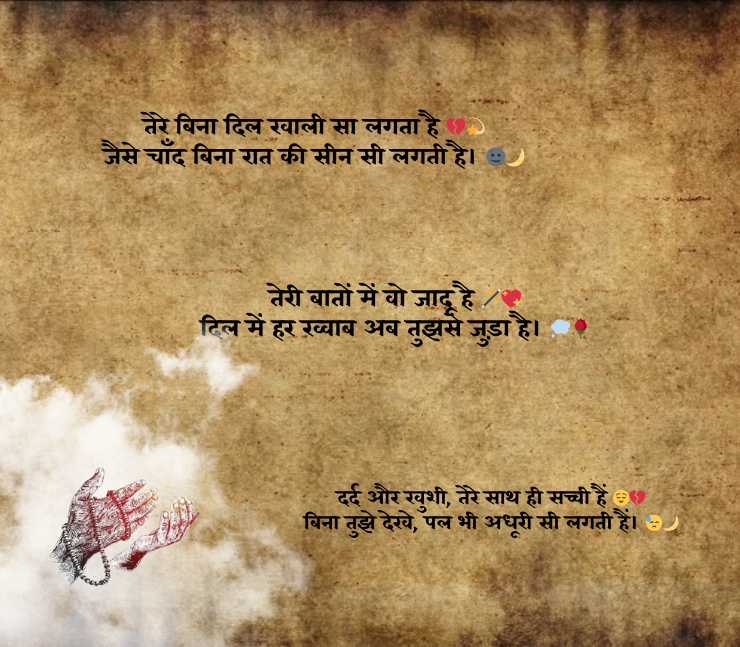 तेरे बिना दिल खाली सा लगता है 💔💫
जैसे चाँद बिना रात की सीन सी लगती है। 🌚🌙
तेरी बातों में वो जादू है 🪄💖
दिल में हर ख्वाब अब तुझसे जुड़ा है। 💭🌹
दर्द और खुशी, तेरे साथ ही सच्ची हैं 😌💔
बिना तुझे देखे, पल भी अधूरी सी लगती हैं। 😓🌙